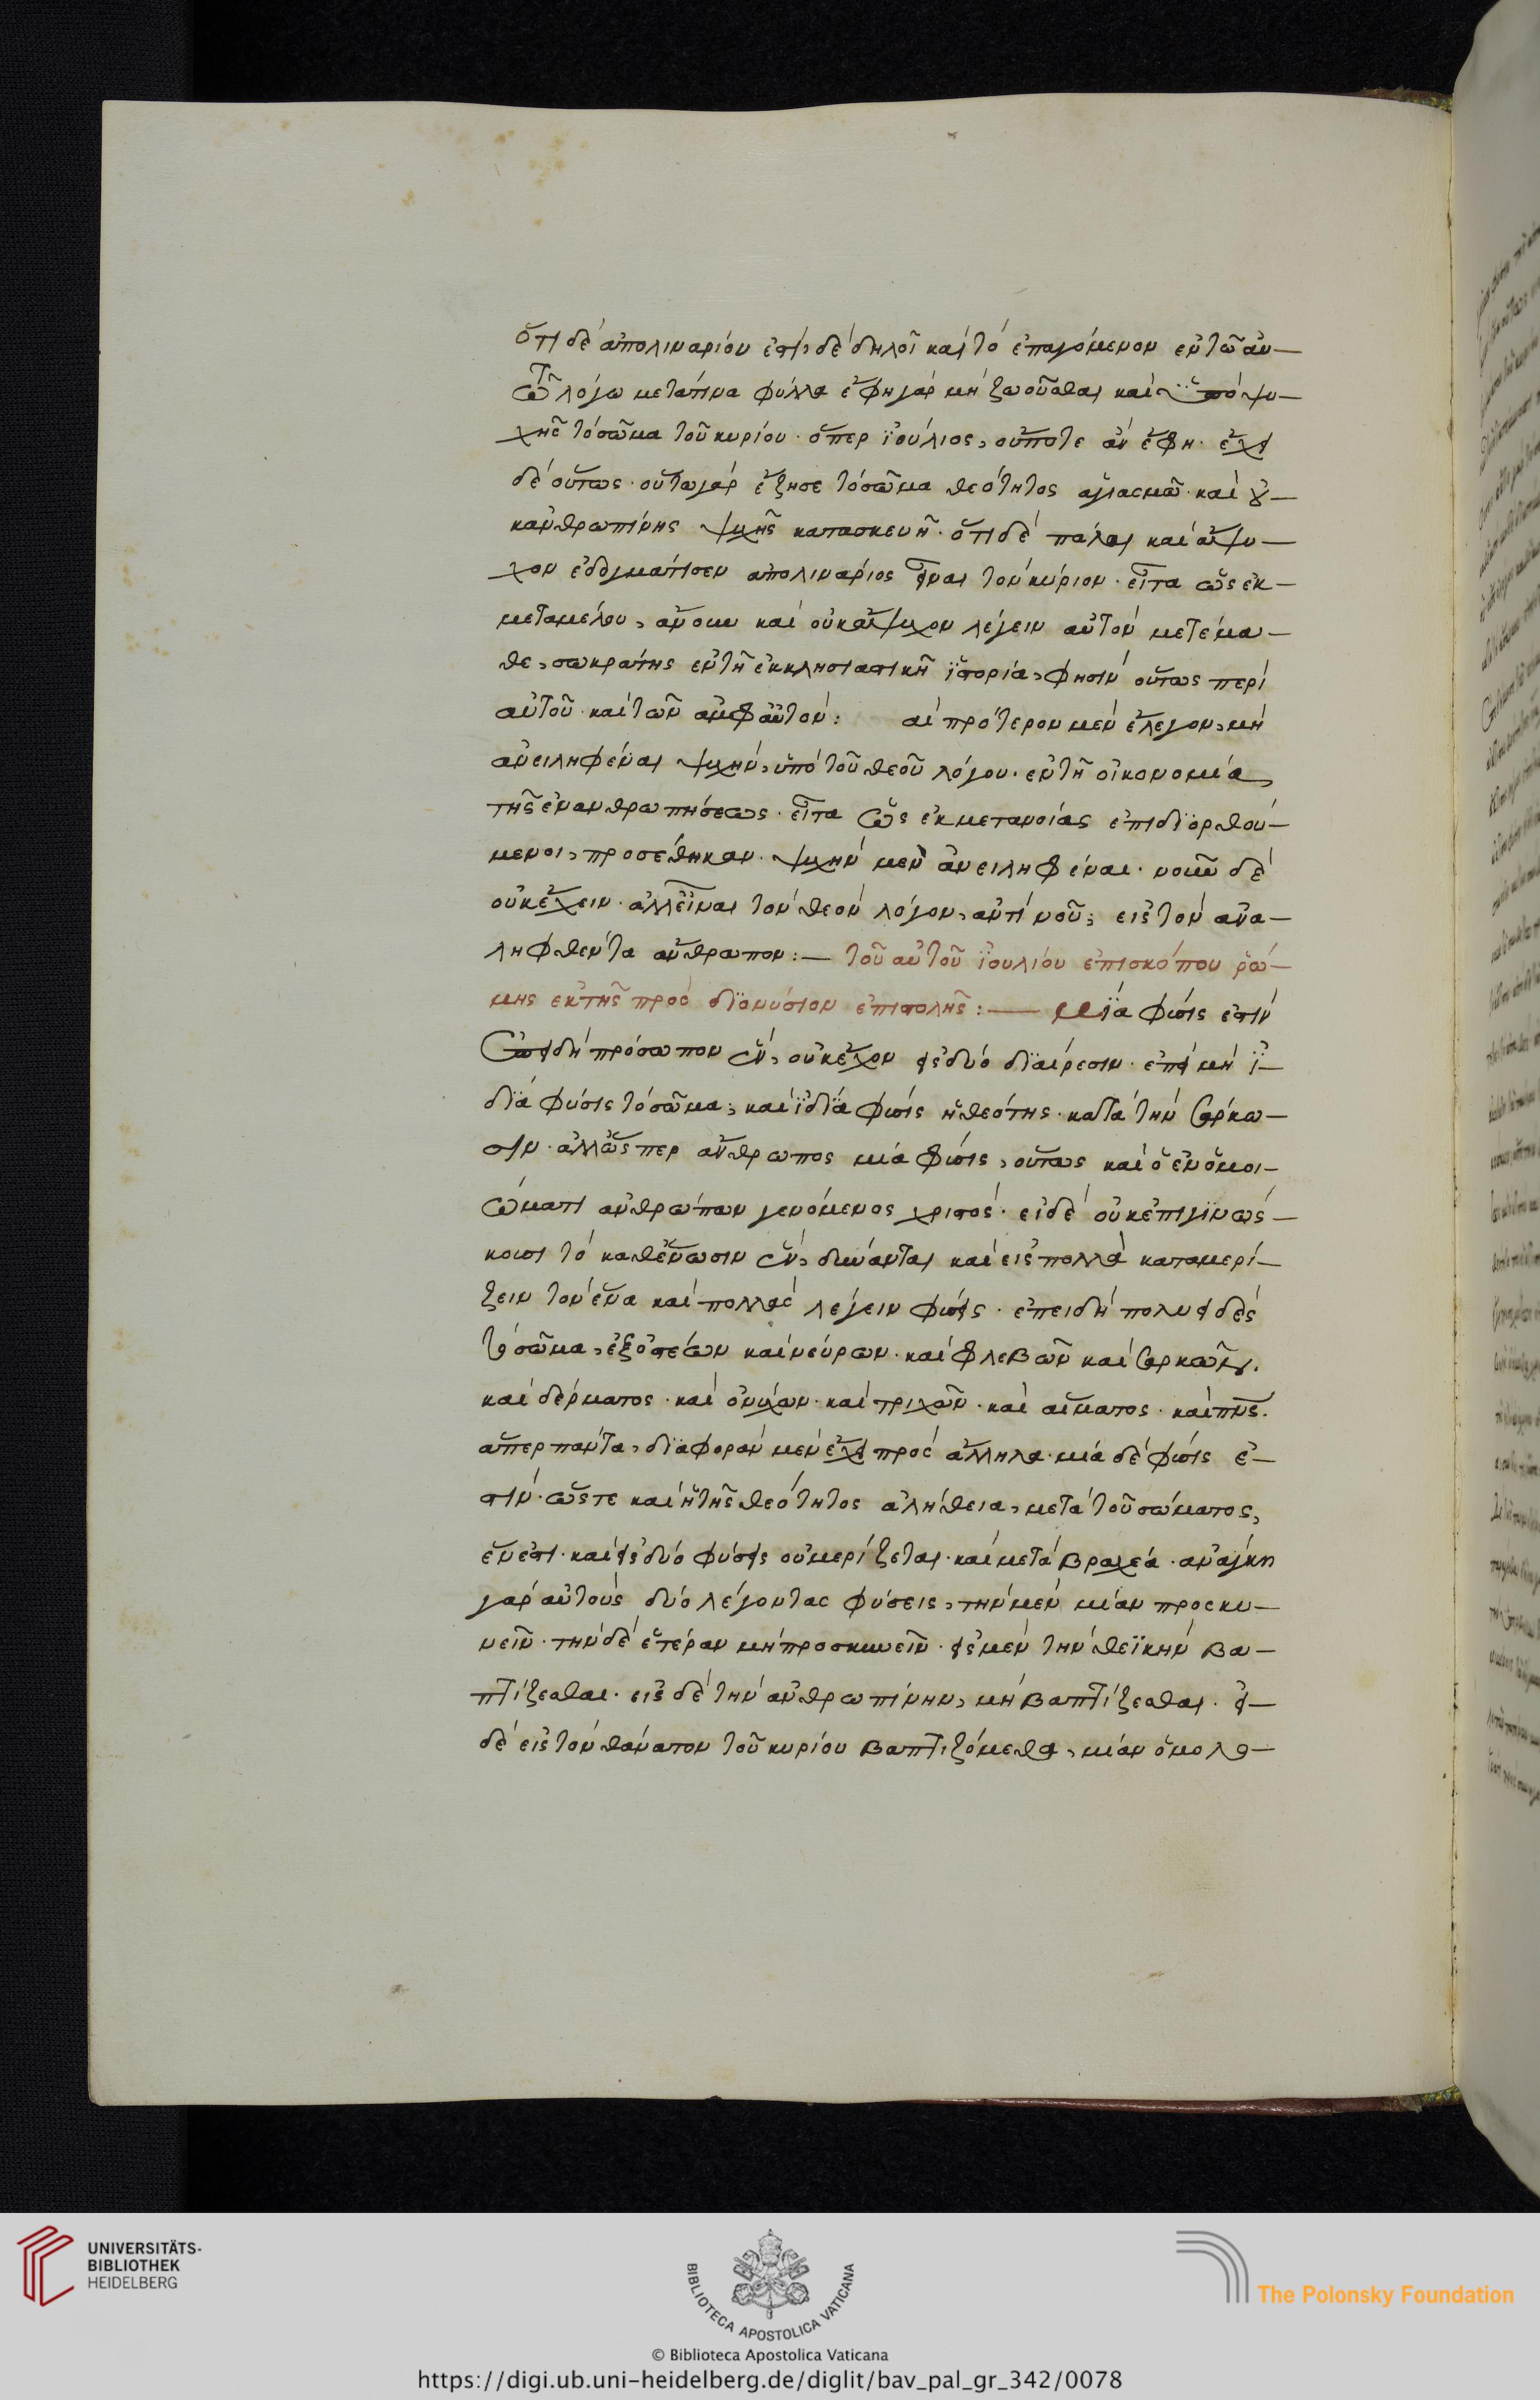 ὅτι δὲ ἀπολιναρίου ἐστὶ, δὲ δηλοῖ καὶ τὸ ἐπαγόμενον ἐν τῶ αὐ—
τῶ λόγω μετά τινα φύλλα ἔφη γὰρ μὴ ζωοῦσθαι καὶ ὑπὸ ψυ—
χῆς τὸ σῶμα τοῦ κυρίου· ὅπερ ἰούλιος, οὔποτε ἂν ἔφη· ἔχει
δὲ οὕτως· οὕτω γὰρ ἔζησε τὸ σῶμα θεότητος ἁγιασμῶ· καὶ οὐ—
κ ἀνθρωπίνης ψυχῆς κατασκευῆ· ὅτι δὲ πάλαι καὶ ἄψυ—
χον ἐδογμάτισεν ἀπολινάριος εἶναι τὸν κύριον· εἶτα ὡς ἐκ—
μεταμέλου, ἄνουν καὶ οὐκ ἄψυχον λέγειν αὐτὸν μετέμα—
θε, σωκράτης ἐν τῆ ἐκκλησιαστικῆ ἱστορία, φησὶν οὕτως περὶ
αὐτοῦ καὶ τῶν ἀμφ αὐτόν: αἱ πρότερον μὲν ἔλεγον, μὴ
ἀνειληφέναι ψυχὴν, ὑπὸ τοῦ θεοῦ λόγου· ἐν τῆ οἰκονομία,
τῆς ἐνανθρωπήσεως· εἶτα ὡς ἐκ μετανοίας ἐπιδιορθού—
μενοι, προσέθηκαν· ψυχὴν μὲν ἀνειληφέναι· νοῦν δὲ
οὐκ ἔχειν· ἀλλ εἶναι τὸν θεὸν λόγον, ἀντὶ νοῦ, εἰς τὸν ἀνα—
ληφθέντα ἄνθρωπον:— τοῦ αὐτοῦ ἰουλίου ἐπισκόπου ῥώ—
μης ἐκ τῆς πρὸς διονύσιον ἐπιστολῆς:— Μία φύσις ἐστὶν
ἐπειδὴ πρόσωπον ἓν, οὐκ ἔχον εἰς δύο διαίρεσιν· ἐπεὶ μὴ ἰ—
δία φύσις τὸ σῶμα, καὶ ἰδία φύσις ἡ θεότης· κατὰ τὴν σάρκω—
σιν· ἀλλ ὥσπερ ἄνθρωπος μία φύσις, οὕτως καὶ ὁ ἐν ὁμοι—
ώματι ἀνθρώπων γενόμενος χριστός· εἰ δὲ οὐκ ἐπιγινώσ—
κουσι τὸ καθ ἕνωσιν ἓν, δύνανται καὶ εἰς πολλὰ καταμερί—
ζειν τὸν ἕνα καὶ πολλὰς λέγειν φύσεις· ἐπειδὴ πολυειδὲς
τὸ σῶμα, ἐξ ὀστέων καὶ νεύρων· καὶ φλεβῶν καὶ σαρκῶν·
καὶ δέρματος· καὶ ὀνύχων· καὶ τριχῶν· καὶ αἵματος· καὶ πνς·
ἅπερ πάντα, διαφορὰν μὲν ἔχει πρὸς ἄλληλα· μία δὲ φύσις ἐ—
στίν· ὥστε καὶ ἡ τῆς θεότητος ἀλήθεια, μετὰ τοῦ σώματος,
ἕν ἐστι· καὶ εἰς δύο φύσεις οὐ μερίζεται· καὶ μετὰ βραχέα· ἀνάγκη
γὰρ αὐτοὺς δύο λέγοντας φύσεις, τὴν μὲν μίαν προσκυ—
νεῖν· τὴν δὲ ἑτέραν μὴ προσκυνεῖν· εἰς μὲν τὴν θεϊκὴν βα—
πτίζεσθαι· εἰς δὲ τὴν ἀνθρωπίνην, μὴ βαπτίζεσθαι· εἰ—
δὲ εἰς τὸν θάνατον τοῦ κυρίου βαπτιζόμεθα, μίαν ὁμολο—
UNIVERSITÄTS-
BIBLIOTHEK
HEIDELBERG
BIBLIOTECA APOSTOLICA VATICANA
The Polonsky Foundation
© Biblioteca Apostolica Vaticana
https://digi.ub.uni-heidelberg.de/diglit/bav_pal_gr_342/0078